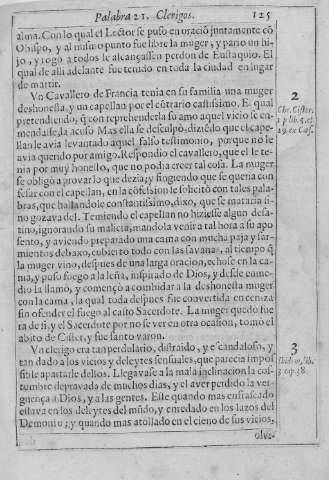 Palabra 21. Clerigos. 125
alma. Con lo qual el Lector se puso en oració juntamente có
Obispo, y al mismo punto fue libre la muger, y pario un hi-
jo, y rogo a todos le alcançassen perdon de Eustaquio. El
qual de alli adelante fue tenido en toda la ciudad en lugar
de martir.
Vn Cavallero de Francia tenia en su familia una muger
deshonesta, y un capellan por el cótrario castissimo. El qual
pretendiendo, q̃ con reprehenderla su amo aquel vicio se en-
mendasse, la acuso Mas ella se desculpò, diziédo que el cape-
llan le avia levantado aquel falso testimonio, porque no le
avia querido por amigo. Respondio el cavallero, que el le te-
nia por muy honesto, que no podia creer tal cosa. La muger
se obligò a provar lo que dezia; y fingiendo que se queria con
fessar con el capellan, en la cófession le solicitò con tales pala-
bras, que hallandole constantissimo, dixo, que se mataria si
no gozava del. Temiendo el capellan no hiziesse algun desa-
tino, ignorando su malicia, mandola venir a tal hora a su apo
sento, y aviendo preparado una cama con mucha paja y sar-
mientos debaxo, cubierto todo con las savanas, al tiempo q̃
la muger vino, despues de una larga oracion, echose en la ca-
ma, y puso fuego a la leña, inspirado de Dios, y desde enme-
dio la llamò, y començò a combidar a la deshonesta muger
con la cama, la qual toda despues fue convertida en ceniza
sin ofender el fuego al casto Sacerdote. La muger quedo fue
ra de si, y el Sacerdote por no se ver en otra ocasion, tomò el
abito de Cister, y fue santo varon.
Vn clerigo era tan perdulario, distraido, y escandaloso, y
tan dado a los vicios y deleytes sensuales, que parecia impos
sible apartarle dellos. Llegavase a la mala inclinacion la cos-
tumbre depravada de muchos dias, y el aver perdido la ver-
guença a Dios, y a las gentes. Este quando mas enfrascado
estava en los deleytes del múdo, y enredado en los lazos del
Demonio; y quando mas atollado en el cieno de sus vicios,
olvi-
2
Chr. Cister.
3